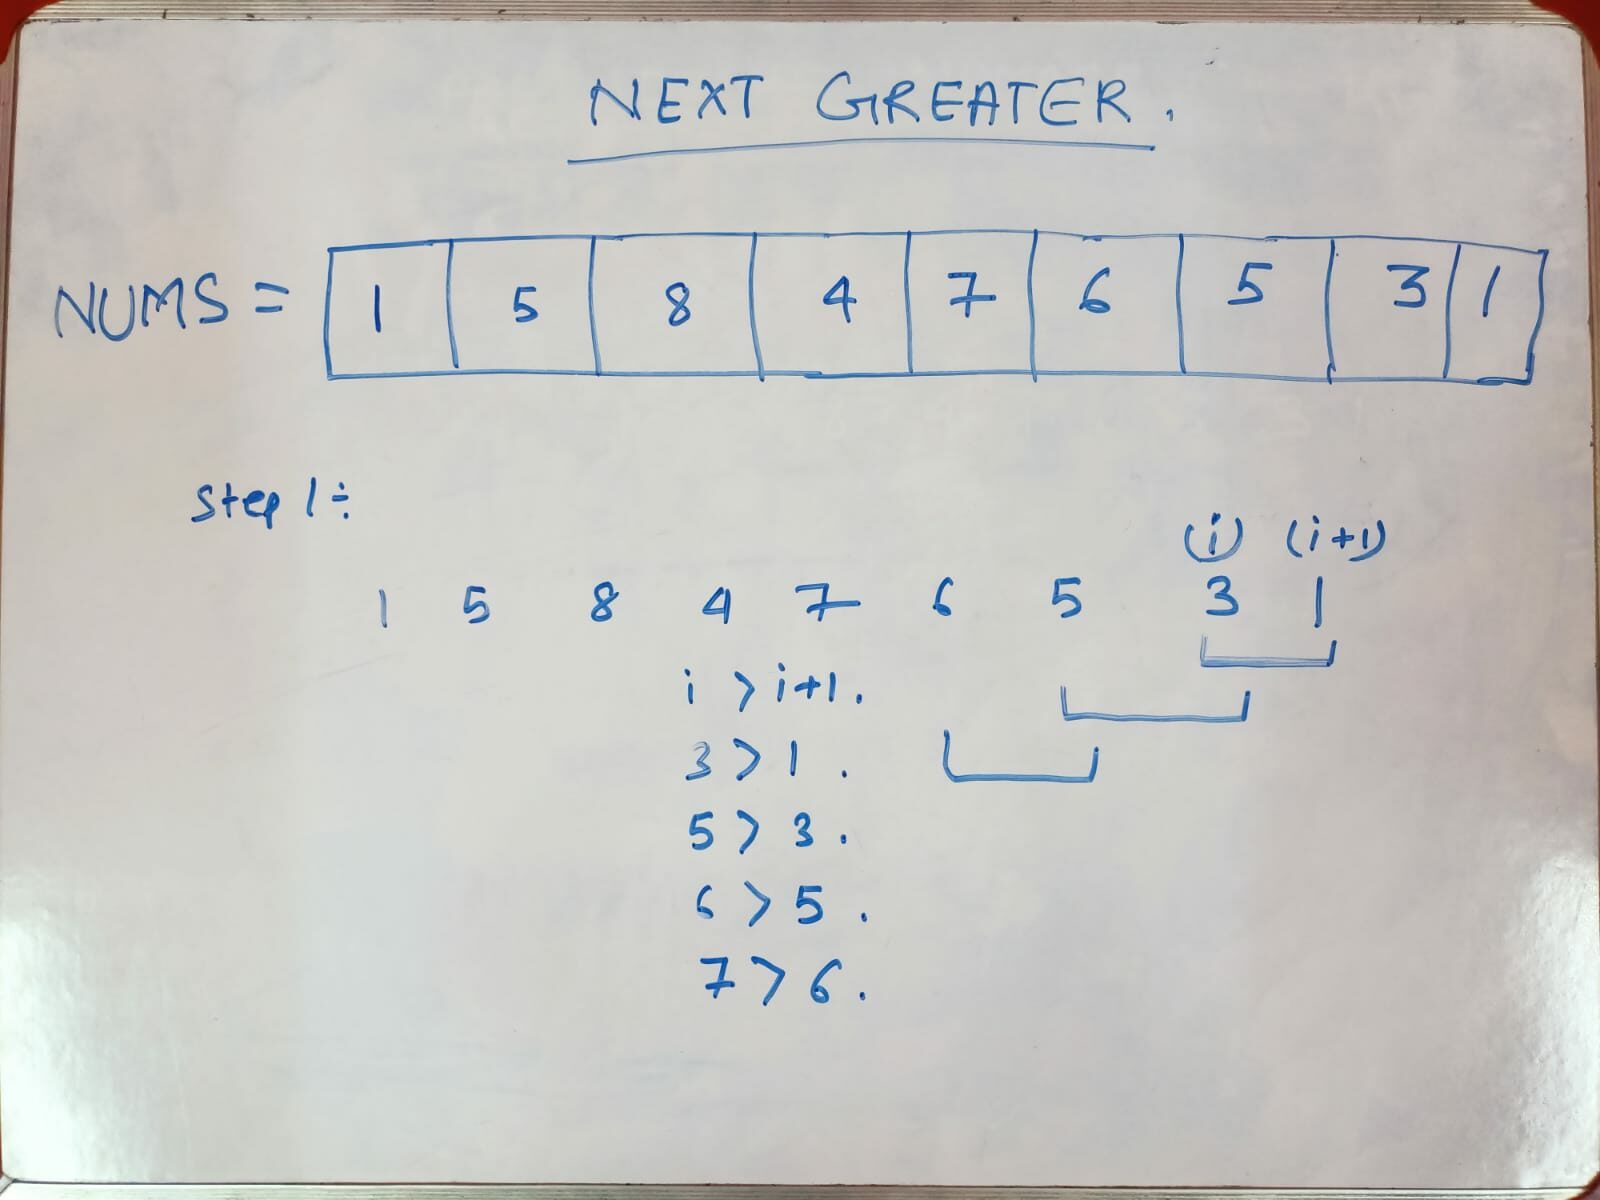 NEXT GREATER.
NUMS = 1 5 8 4 7 6 5 3 1
Step 1÷
(i) (i+1)
1 5 8 4 7 6 5 3 1
i > i+1.
3 > 1.
5 > 3.
6 > 5.
7 > 6.